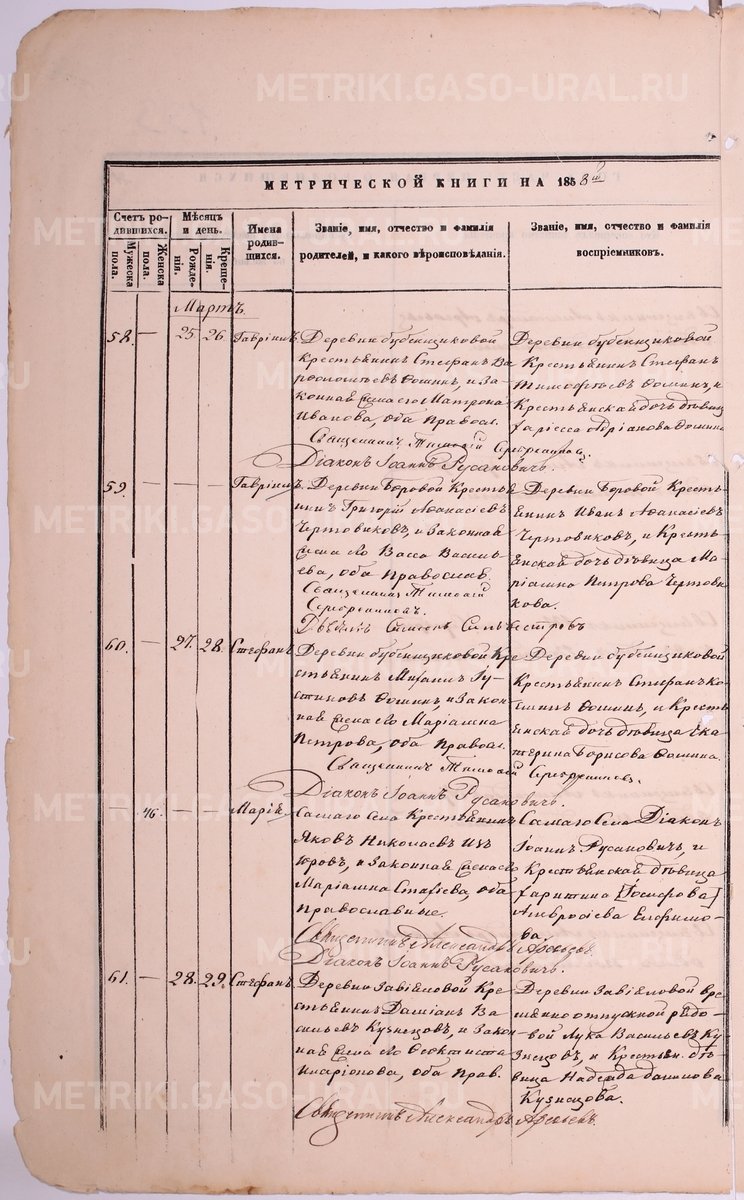 METRIKI.GASO-URAL.RU
МЕТРИЧЕСКОЙ КНИГИ НА 1858й
Счетъ родившихся.
Мужеска пола.
Женска пола.
Мѣсяцъ и день.
Рожденія.
Крещенія.
Имена родившихся.
Званіе, имя, отчество и фамилія
родителей, и какого вѣроисповѣданія.
Званіе, имя, отчество и фамилія
воспріемниковъ.
Мартъ.
58. — 25. 26. Гавріилъ
Деревни Бубенщиковой
Крестьянинъ Стефанъ
Ѳоминъ, и За-
конная Жена его Матрона
Иванова, оба Правосл.
Священникъ Тимоѳей Серебренниковъ.
Діаконъ Іоаннъ Русановичъ.
Деревни Бубенщиковой
Крестьянинъ Стефанъ
Тимоѳеевъ Ѳоминъ, и
Крестьянская дочь дѣвица
Адріанова Ѳомина
59. — — — Гавріилъ.
Деревни Боровой Кресть-
нинъ Григорій Аѳанасіевъ
Чертовиковъ, и Законная
Жена его Васса Василь-
ева, оба Православ.
Священникъ Тимоѳей
Серебренниковъ.
Деревни Боровой Кресть-
янинъ Иванъ Аѳанасіевъ
Чертовиковъ, и Кресть-
янская дочь дѣвица Ма-
ріамна Петрова Чертови-
кова.
60. — 27. 28. Стефанъ
Деревни Бубенщиковой Кре-
стьянинъ
Ѳоминъ, и Закон-
ная Жена его Маріамна
Петрова, оба Правосл.
Священникъ Тимоѳей Серебренниковъ.
Діаконъ Іоаннъ Русановичъ.
Деревни Бубенщиковой
Крестьянинъ Стефанъ
Ѳоминъ, и Кресть-
янская дочь дѣвица Ека-
терина Борисова Ѳомина.
— 46. — — Марія
Самаго Села Крестьянинъ
Яковъ Николаевъ
и Законная Жена его
Маріамна оба
Православные.
Священникъ Александръ
Діаконъ Іоаннъ Русановичъ.
Самаго Села Діаконъ
Іоаннъ Русановичъ, и
Крестьянская дѣвица
[Іосифова]
Амвросіева Ефимо-
ва.
61. — 28. 29. Стефанъ
Деревни Завьяловой Кре-
стьянинъ Даміанъ Ва-
сильевъ Кузнецовъ, и Закон-
ная Жена его Ѳеоктиста
Иларіонова, оба Прав.
Священникъ Александръ
Деревни Завьяловой вре-
менноотпускной рядо-
вой Лука Васильевъ Ку-
знецовъ, и Крестьян. дѣ-
вица Надежда Данилова
Кузнецова.